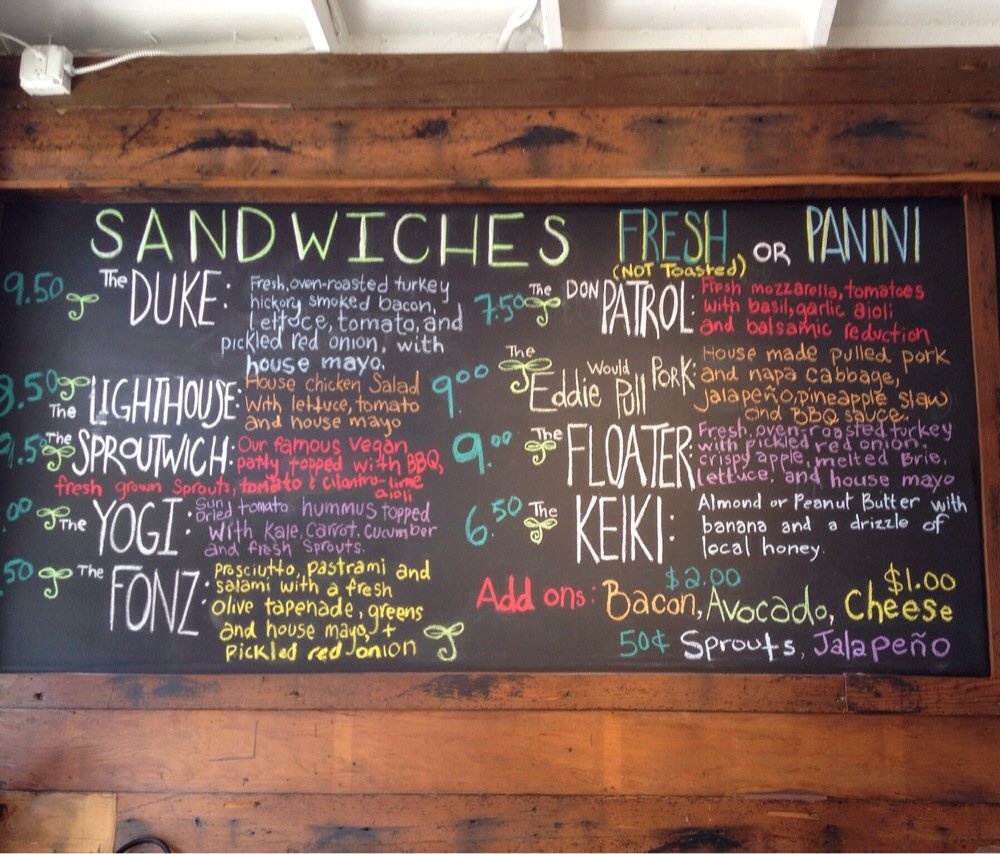 SANDWICHES FRESH OR PANINI
(NOT Toasted)
9.50 The DUKE: Fresh, oven-roasted turkey
hickory smoked bacon,
lettuce, tomato, and
pickled red onion, with
house mayo.
8.50 The LIGHTHOUSE: House Chicken Salad
with lettuce, tomato
and house mayo
9.50 The SPROUTWICH: Our famous Vegan
patty topped with BBQ,
fresh grown Sprouts, tomato & cilantro-lime
aioli
.00 The YOGI: Sun Dried tomato hummus topped
with Kale, Carrot, Cucumber
and fresh Sprouts.
50 The FONZ: Prosciutto, Pastrami and
salami with a fresh
olive tapenade, greens
and house mayo, +
pickled red onion
7.50 The DON PATROL: Fresh mozzarella, tomatoes
with basil, garlic aioli
and balsamic reduction
9.00 The Eddie Would Pull PORK: House made pulled pork
and napa cabbage,
jalapeño, pineapple slaw
and BBQ sauce.
9.00 The FLOATER: Fresh, oven, roasted, turkey
with pickled red onion,
crispy apple, melted Brie,
lettuce, and house mayo
6.50 The KEIKI: Almond or Peanut Butter with
banana and a drizzle of
local honey.
$2.00 $1.00
Add ons: Bacon, Avocado, Cheese
50¢ Sprouts, Jalapeño